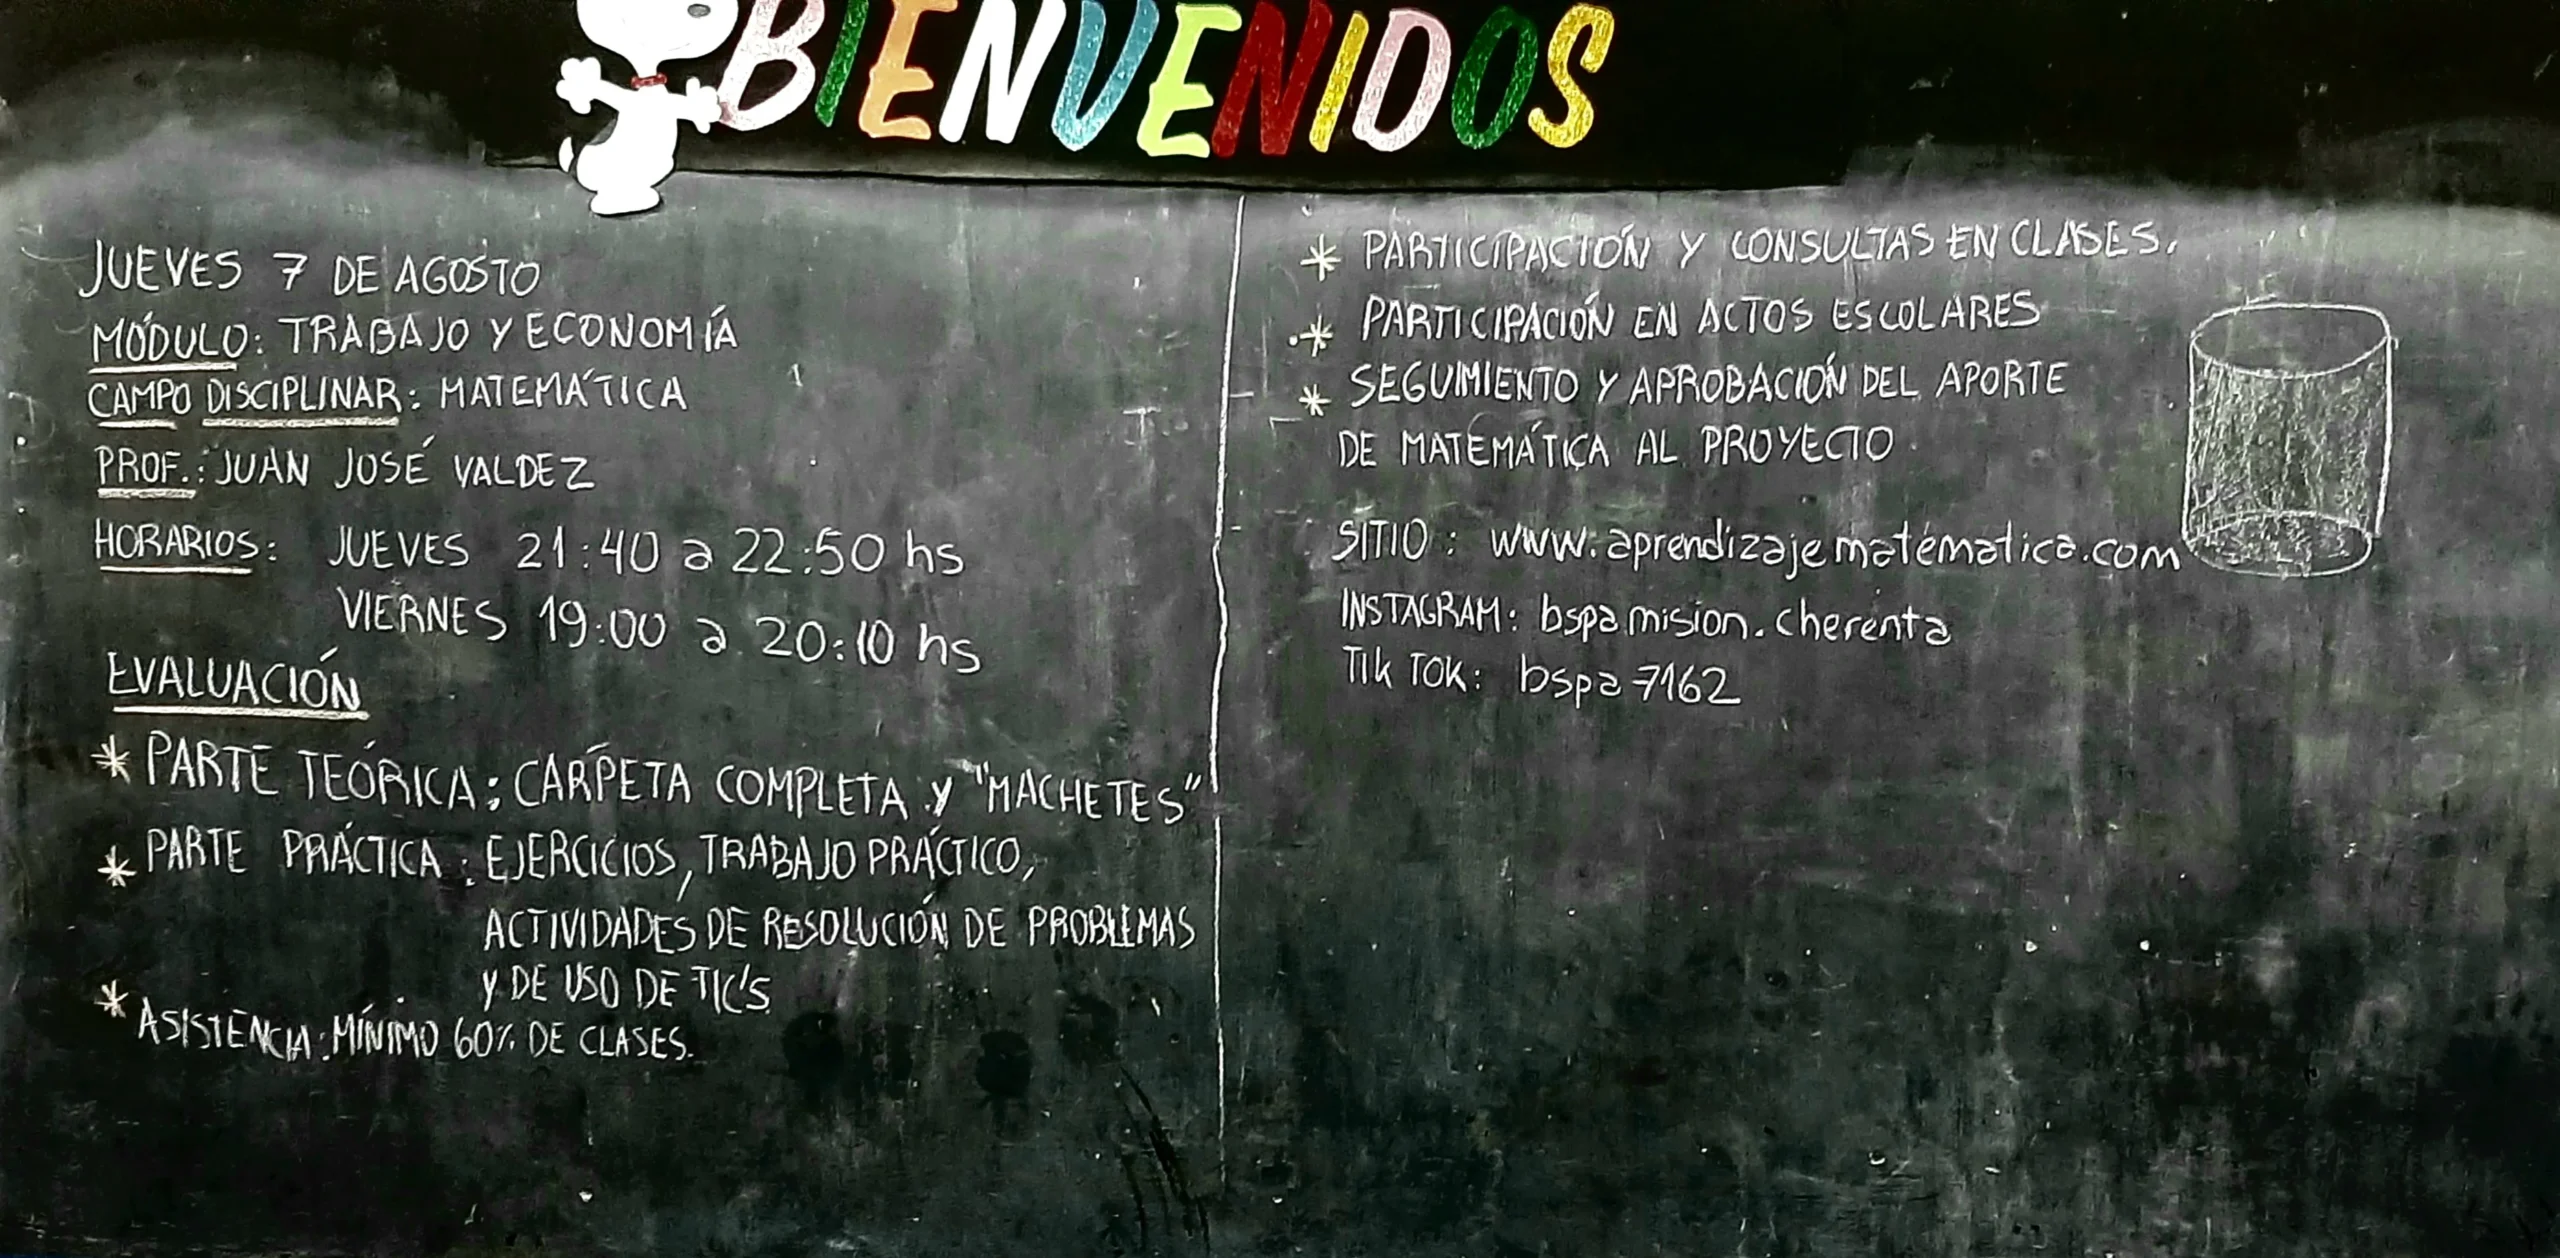 BIENVENIDOS
JUEVES 7 DE AGOSTO
MÓDULO: TRABAJO Y ECONOMÍA
CAMPO DISCIPLINAR: MATEMÁTICA
PROF.: JUAN JOSÉ VALDEZ
HORARIOS: JUEVES 21:40 a 22:50 hs
VIERNES 19:00 a 20:10 hs
EVALUACIÓN
* PARTE TEÓRICA: CARPETA COMPLETA y "MACHETES"
* PARTE PRÁCTICA: EJERCICIOS, TRABAJO PRÁCTICO,
ACTIVIDADES DE RESOLUCIÓN DE PROBLEMAS
Y DE USO DE TIC'S.
* ASISTENCIA: MÍNIMO 60% DE CLASES.
* PARTICIPACIÓN Y CONSULTAS EN CLASES.
* PARTICIPACIÓN EN ACTOS ESCOLARES
* SEGUIMIENTO Y APROBACIÓN DEL APORTE
DE MATEMÁTICA AL PROYECTO.
SITIO: www.aprendizajematematica.com
INSTAGRAM: bspamision.cherenta
TIK TOK: bspa7162